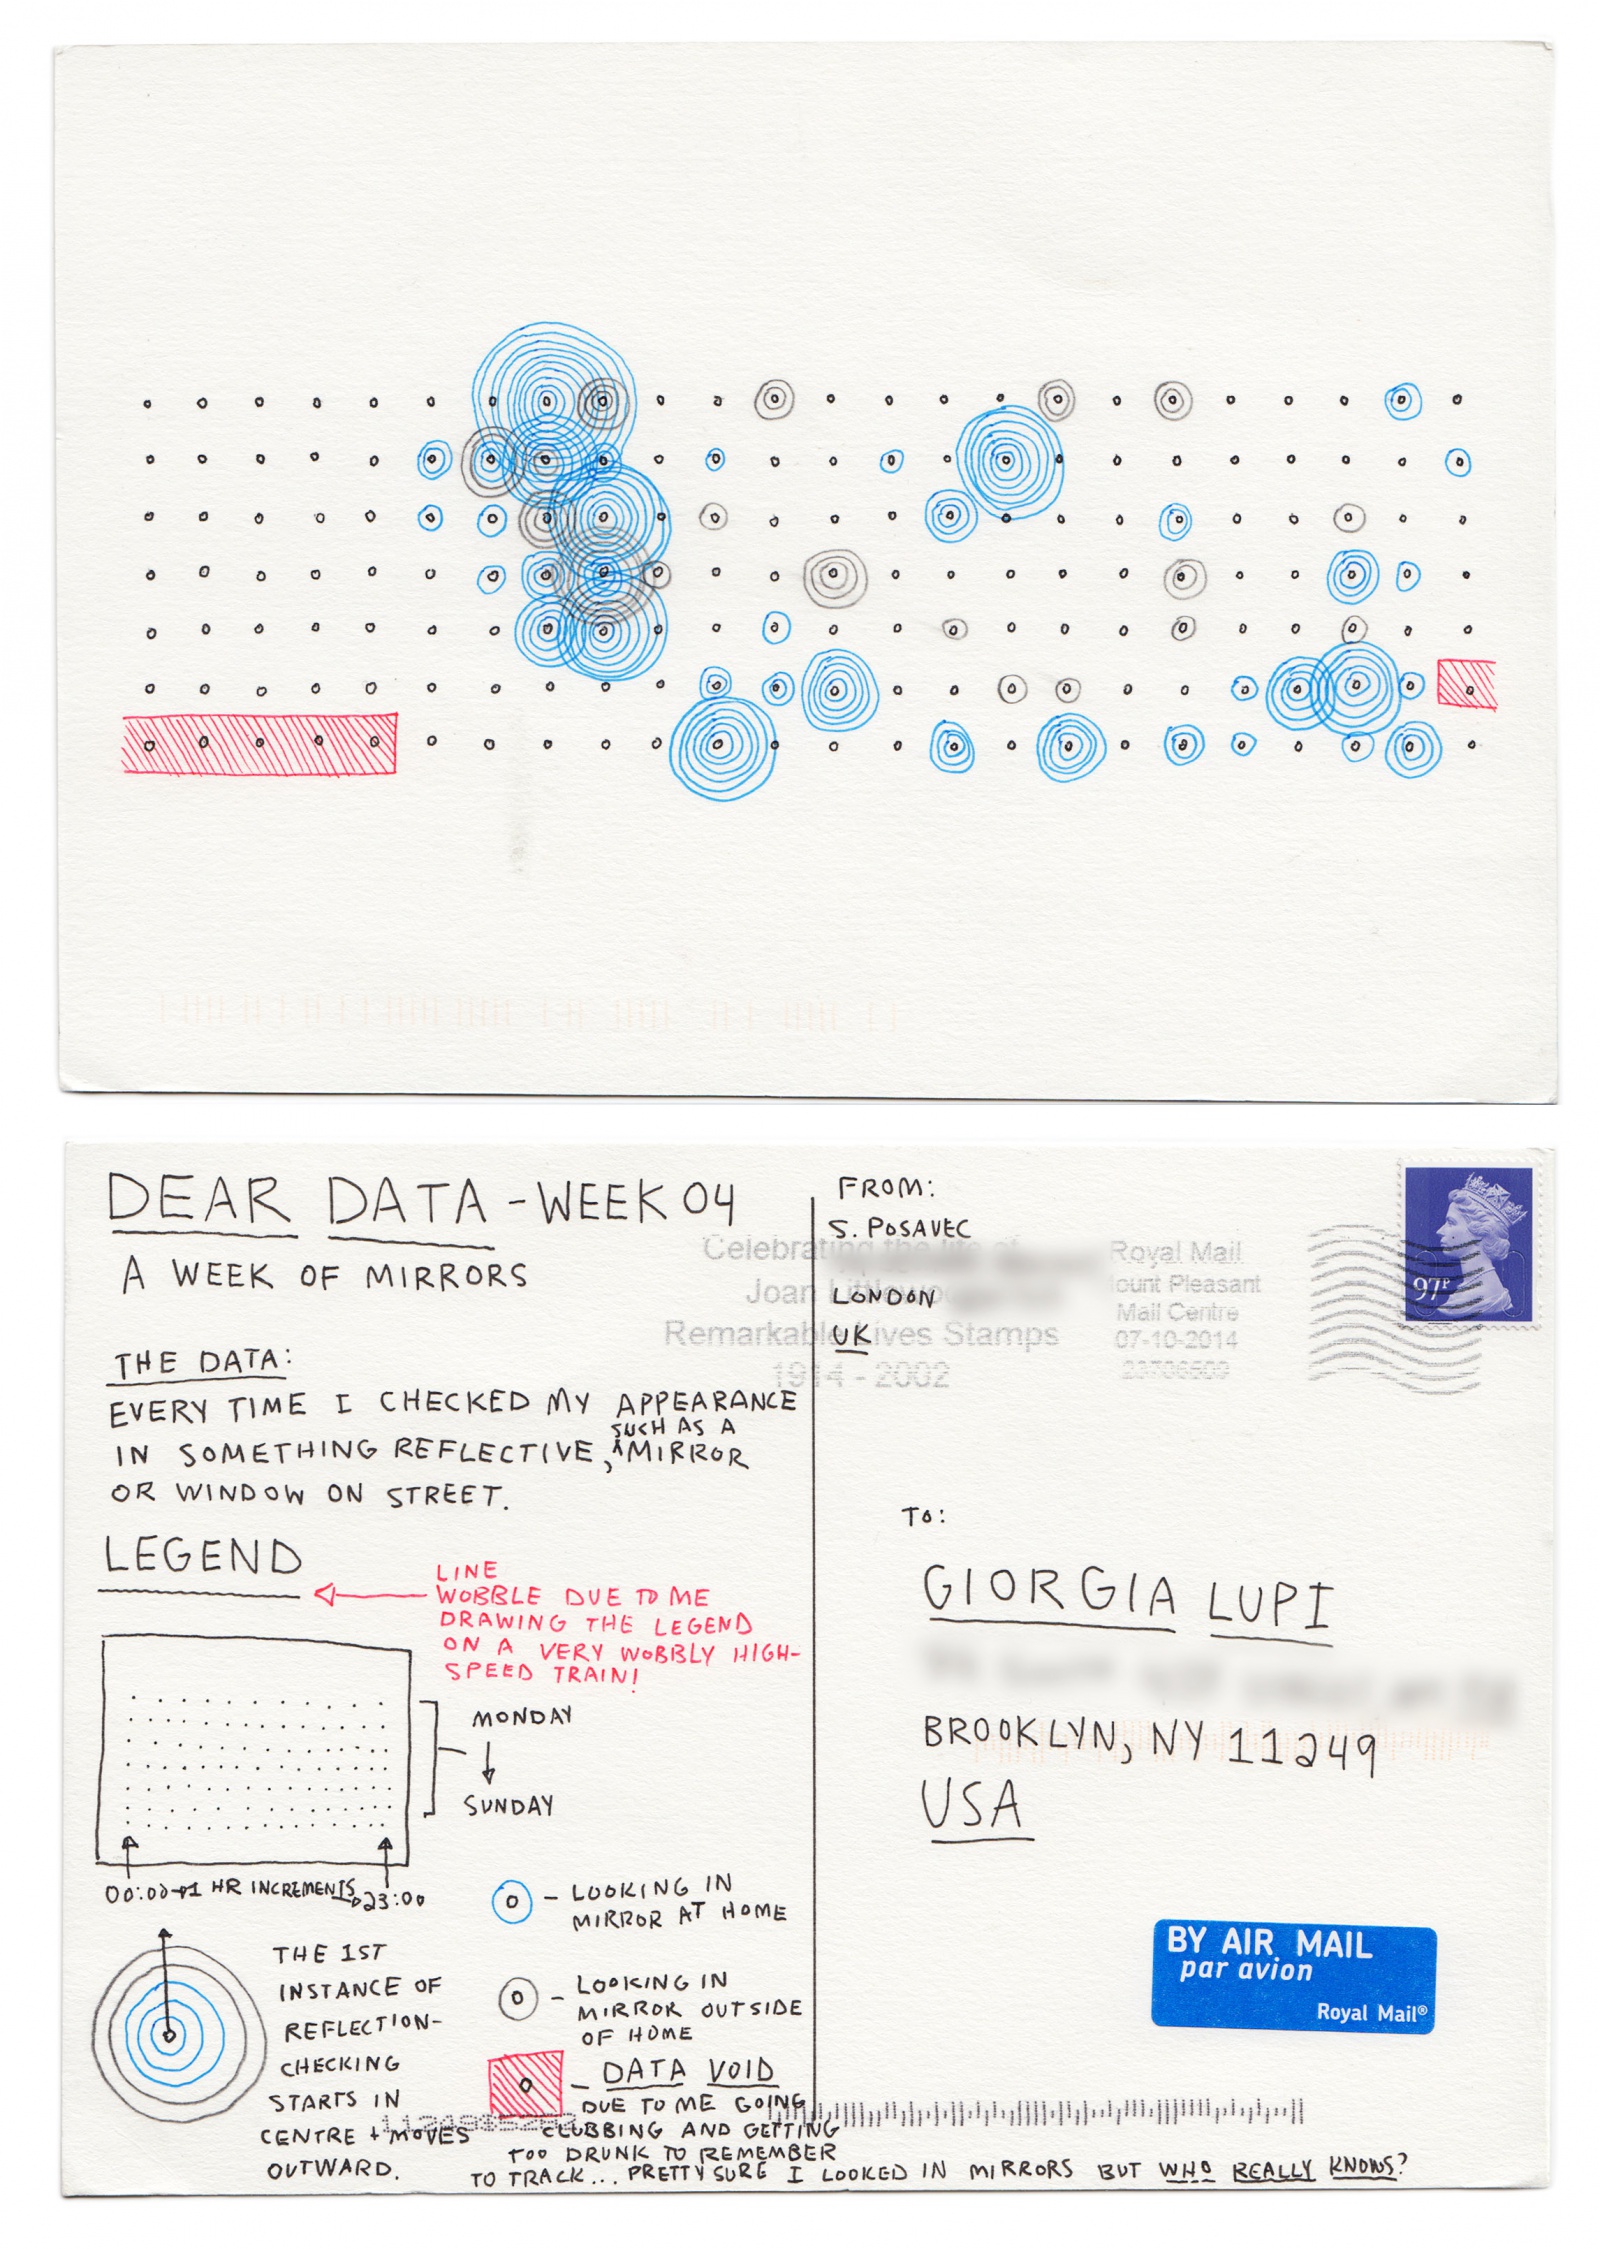 DEAR DATA - WEEK 04
A WEEK OF MIRRORS
THE DATA:
EVERY TIME I CHECKED MY APPEARANCE
IN SOMETHING REFLECTIVE, SUCH AS A MIRROR
OR WINDOW ON STREET.
LEGEND
LINE
WOBBLE DUE TO ME
DRAWING THE LEGEND
ON A VERY WOBBLY HIGH-
SPEED TRAIN!
MONDAY
SUNDAY
00:00 → 1 HR INCREMENTS → 23:00
THE 1ST
INSTANCE OF
REFLECTION-
CHECKING
STARTS IN
CENTRE + MOVES
OUTWARD.
- LOOKING IN
MIRROR AT HOME
- LOOKING IN
MIRROR OUTSIDE
OF HOME
- DATA VOID
DUE TO ME GOING
CLUBBING AND GETTING
TOO DRUNK TO REMEMBER
TO TRACK... PRETTY SURE I LOOKED IN MIRRORS BUT WHO REALLY KNOWS?
FROM:
S. POSAVEC
LONDON
UK
Celebrating the life of
Joan
Remarkable Lives Stamps
1914 - 2002
Royal Mail
Mount Pleasant
Mail Centre
07-10-2014
97P
TO:
GIORGIA LUPI
BROOKLYN, NY 11249
USA
BY AIR MAIL
par avion
Royal Mail®